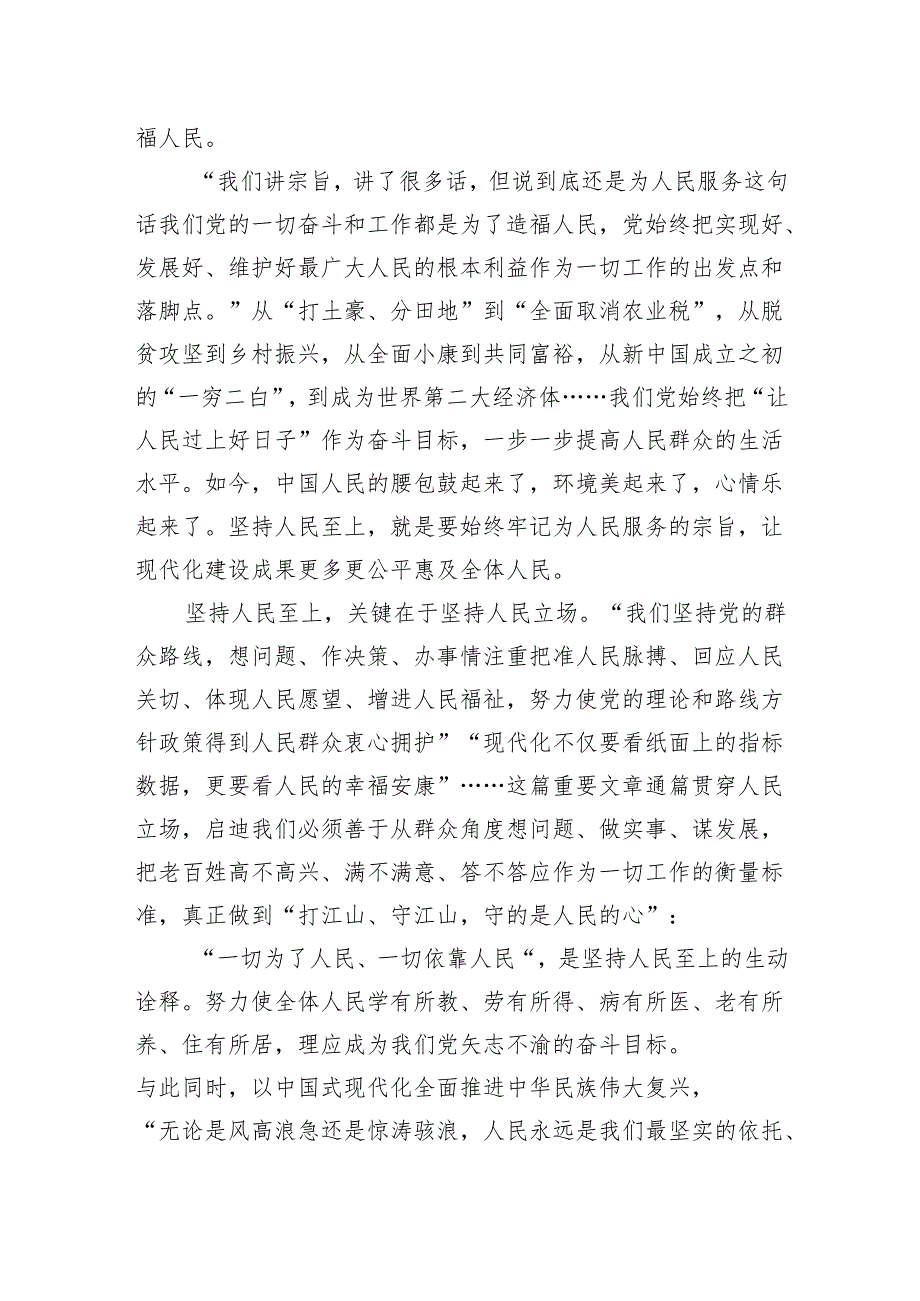 福人民。
“我们讲宗旨，讲了很多话，但说到底还是为人民服务这句
话我们党的一切奋斗和工作都是为了造福人民，党始终把实现好、
发展好、维护好最广大人民的根本利益作为一切工作的出发点和
落脚点。”从“打土豪、分田地”到“全面取消农业税”，从脱
贫攻坚到乡村振兴，从全面小康到共同富裕，从新中国成立之初
的“一穷二白”，到成为世界第二大经济体……我们党始终把“让
人民过上好日子”作为奋斗目标，一步一步提高人民群众的生活
水平。如今，中国人民的腰包鼓起来了，环境美起来了，心情乐
起来了。坚持人民至上，就是要始终牢记为人民服务的宗旨，让
现代化建设成果更多更公平惠及全体人民。
坚持人民至上，关键在于坚持人民立场。“我们坚持党的群
众路线，想问题、作决策、办事情注重把准人民脉搏、回应人民
关切、体现人民愿望、增进人民福祉，努力使党的理论和路线方
针政策得到人民群众衷心拥护”“现代化不仅要看纸面上的指标
数据，更要看人民的幸福安康”……这篇重要文章通篇贯穿人民
立场，启迪我们必须善于从群众角度想问题、做实事、谋发展，
把老百姓高不高兴、满不满意、答不答应作为一切工作的衡量标
准，真正做到“打江山、守江山，守的是人民的心”：
“一切为了人民、一切依靠人民“，是坚持人民至上的生动
诠释。努力使全体人民学有所教、劳有所得、病有所医、老有所
养、住有所居，理应成为我们党矢志不渝的奋斗目标。
与此同时，以中国式现代化全面推进中华民族伟大复兴，
“无论是风高浪急还是惊涛骇浪，人民永远是我们最坚实的依托、